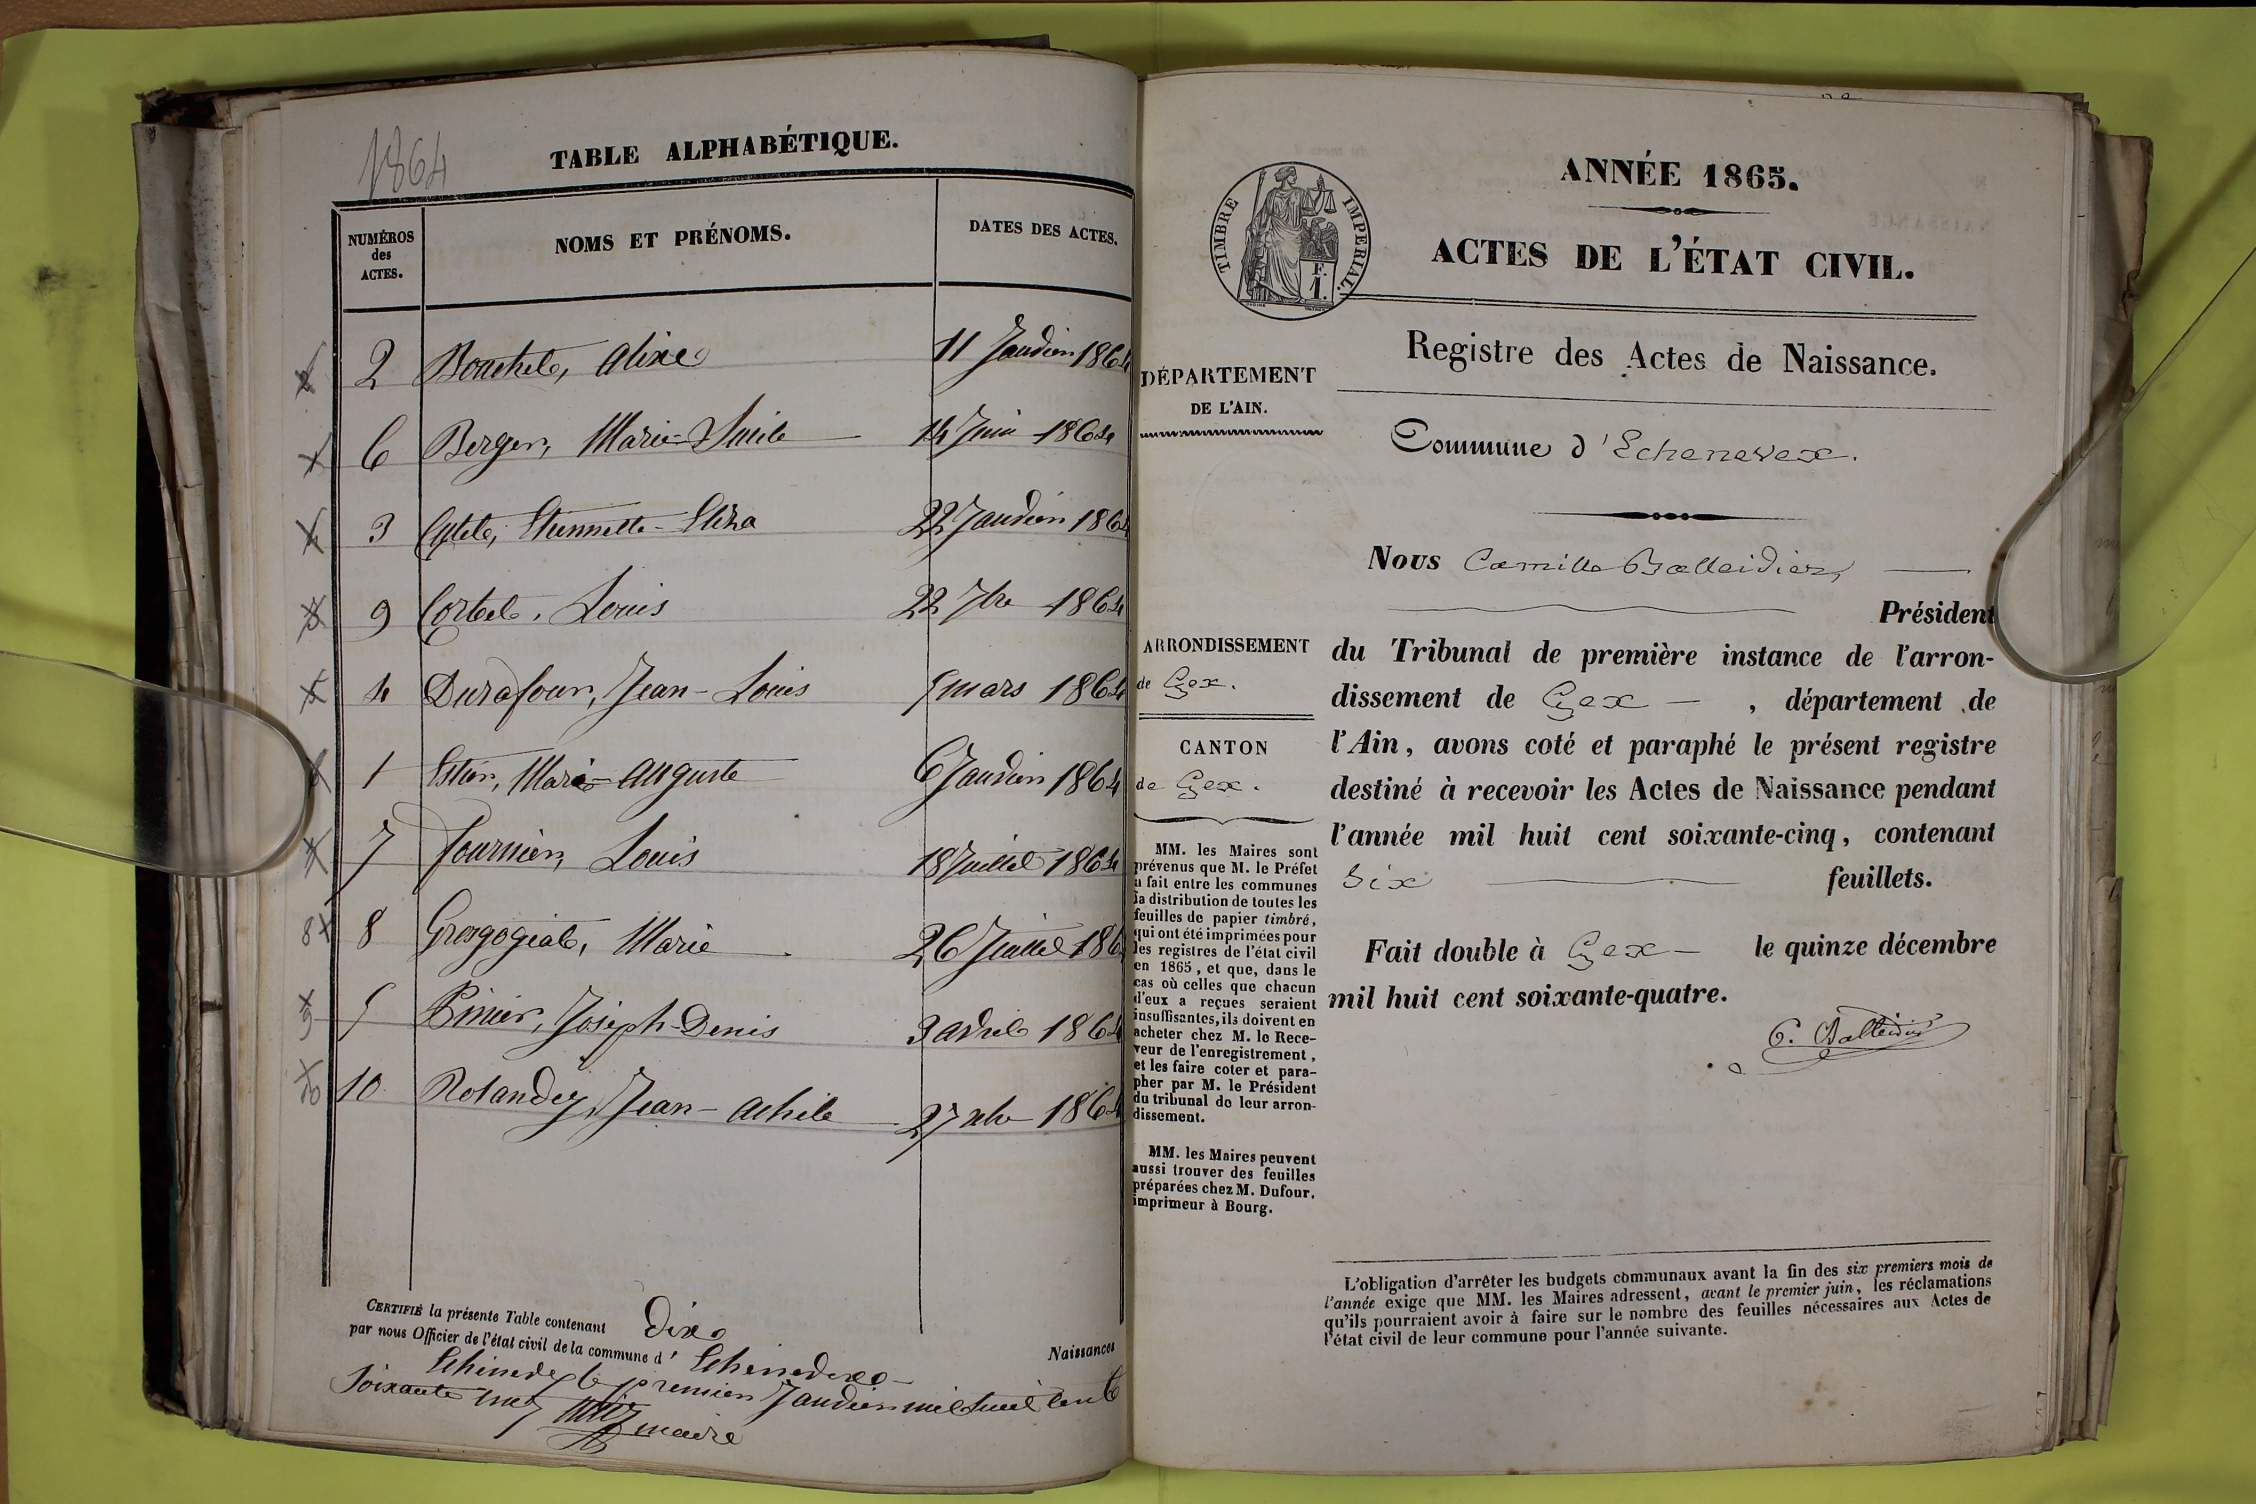 1864
TABLE ALPHABÉTIQUE.
NUMÉROS
des
ACTES.
NOMS ET PRÉNOMS.
DATES DES ACTES.
2 Bouchet, alixe 11 Janvier 1864
6 Berger, Marie 14 Juin 1864
3 Etiennette-Eliza 22 Janvier 1864
9 Corbet, Louis 22 7bre 1864
4 Durafour, Jean-Louis 5 mars 1864
1 Estier, Marie-Auguste 6 Janvier 1864
7 fournier, Louis 18 Juillet 1864
8 Grosgogeat, Marie 26 Juillet 186
5 Pinier, Joseph-Denis 3 avril 1864
10 Rolandez, Jean-Achile 27 xbre 1864
CERTIFIÉ la présente Table contenant dix
Naissances
par nous Officier de l'état civil de la commune d' Echenevex
Echenevex le premier Janvier mil huit cent
Soixante cinq
maire
TIMBRE IMPÉRIAL
F.
1.
ANNÉE 1865.
ACTES DE L'ÉTAT CIVIL.
Registre des Actes de Naissance.
DÉPARTEMENT
DE L'AIN.
Commune d'Echenevex.
Nous Camille Balleidier,
Président
ARRONDISSEMENT
de Gex.
CANTON
de Gex.
du Tribunal de première instance de l'arron-
dissement de Gex , département de
l'Ain, avons coté et paraphé le présent registre
destiné à recevoir les Actes de Naissance pendant
l'année mil huit cent soixante-cinq, contenant
six feuillets.
Fait double à Gex le quinze décembre
mil huit cent soixante-quatre.
C. Balleidier
MM. les Maires sont
prévenus que M. le Préfet
a fait entre les communes
la distribution de toutes les
feuilles de papier timbré,
qui ont été imprimées pour
les registres de l'état civil
en 1865, et que, dans le
cas où celles que chacun
d'eux a reçues seraient
insuffisantes, ils doivent en
acheter chez M. le Rece-
veur de l'enregistrement,
et les faire coter et para-
pher par M. le Président
du tribunal de leur arron-
dissement.
MM. les Maires peuvent
aussi trouver des feuilles
préparées chez M. Dufour,
imprimeur à Bourg.
L'obligation d'arrêter les budgets communaux avant la fin des six premiers mois de
l'année exige que MM. les Maires adressent, avant le premier juin, les réclamations
qu'ils pourraient avoir à faire sur le nombre des feuilles nécessaires aux Actes de
l'état civil de leur commune pour l'année suivante.